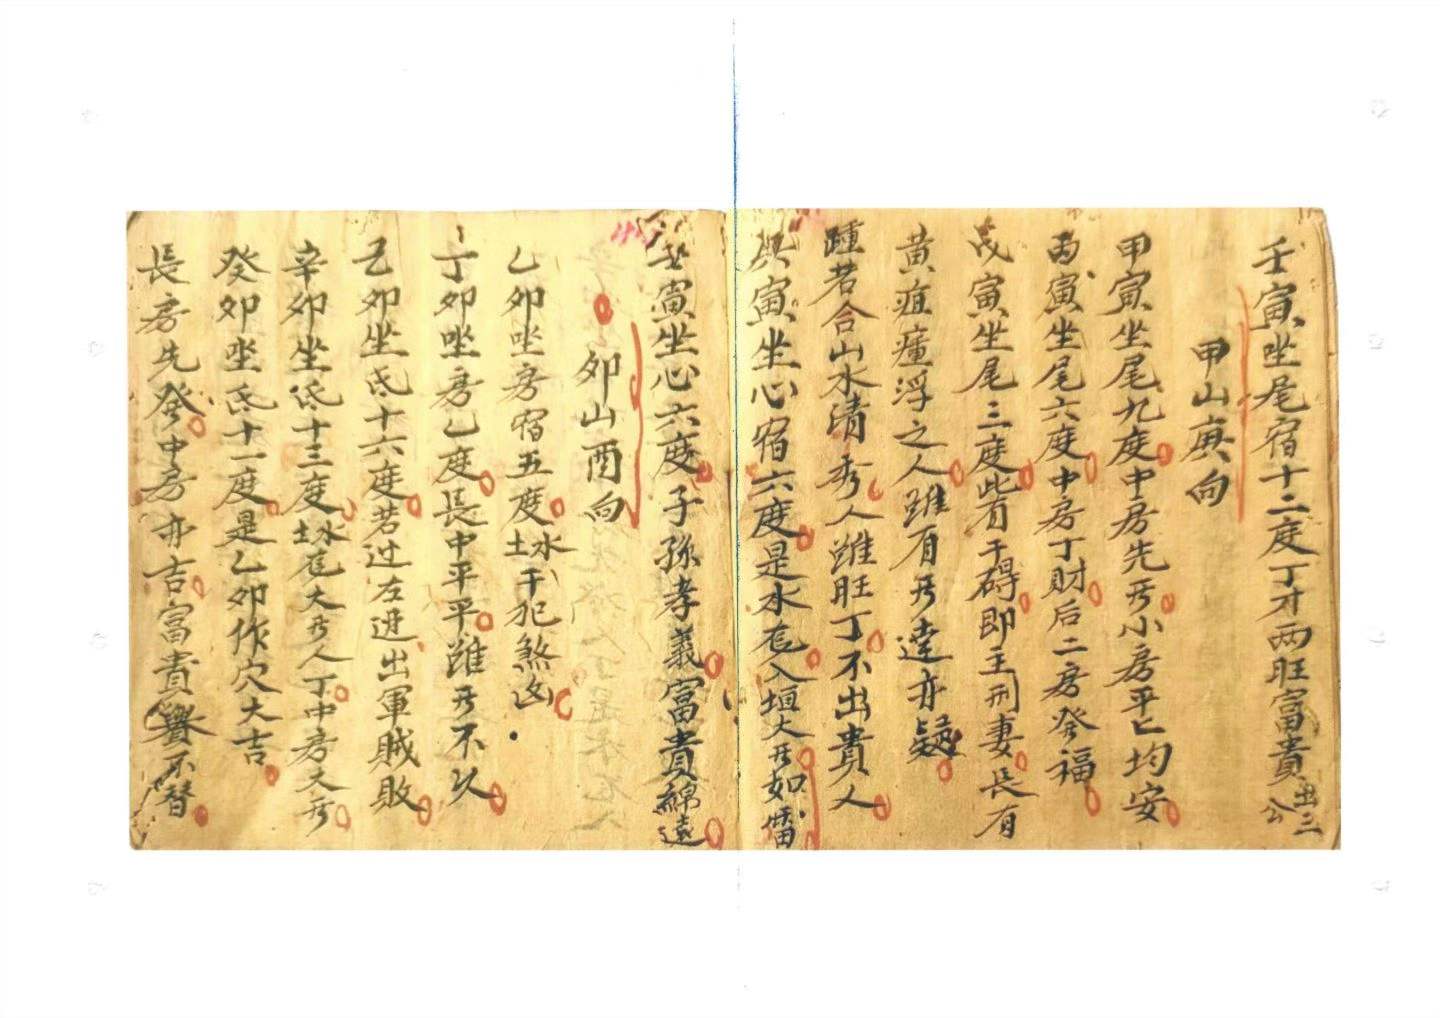 壬寅坐尾宿十二度丁才两旺富貴出三公
甲山庚向
甲寅坐尾九度中房先発小房平匕均安
丙寅坐尾六度中房丁財后二房癸福
戊寅坐尾三度此有干碍即主刑妻長有
黄疸瘴浮之人雖有発達亦疑
踵若合山水清秀人雖旺丁不出貴人
庚寅坐心宿六度是水危入垣大発如雷
壬寅坐心六度子孫孝義富貴綿遠
卯山酉向
乙卯坐房宿五度土水干犯煞凶
丁卯坐房乙度長中平平雖発不久
己卯坐氐十六度若过左进出軍賊敗
辛卯坐氐十三度土水危大発人丁中房大発
癸卯坐氐十一度是乙卯作穴大吉
長房先癸中房亦吉富貴不替